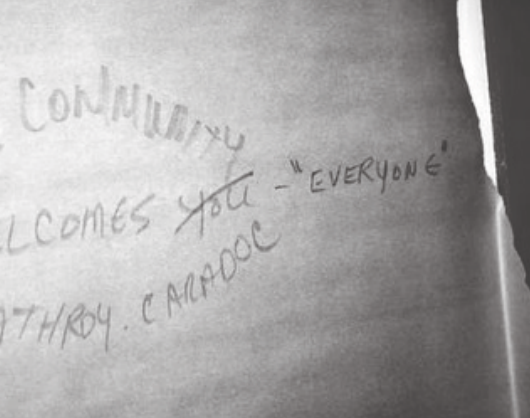 COMMUNITY
LCOMES you - "EVERYONE"
THROY. CARADOC